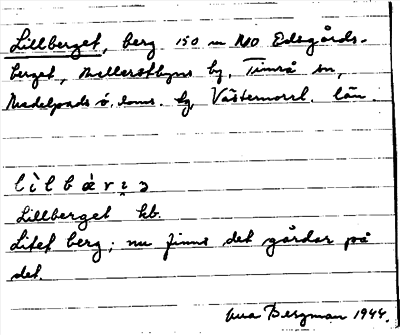 Lillberget, berg 150 m NO Edsgårds-
berget, Mellerstbyns by, Timrå sn,
Medelpads ö. doms. hg, Västernorrl. län.
lìlbàrɪ̣ɜ
Lillberget kb.
Litet berg; nu finns det gårdar på
det.
Bergman 1944.